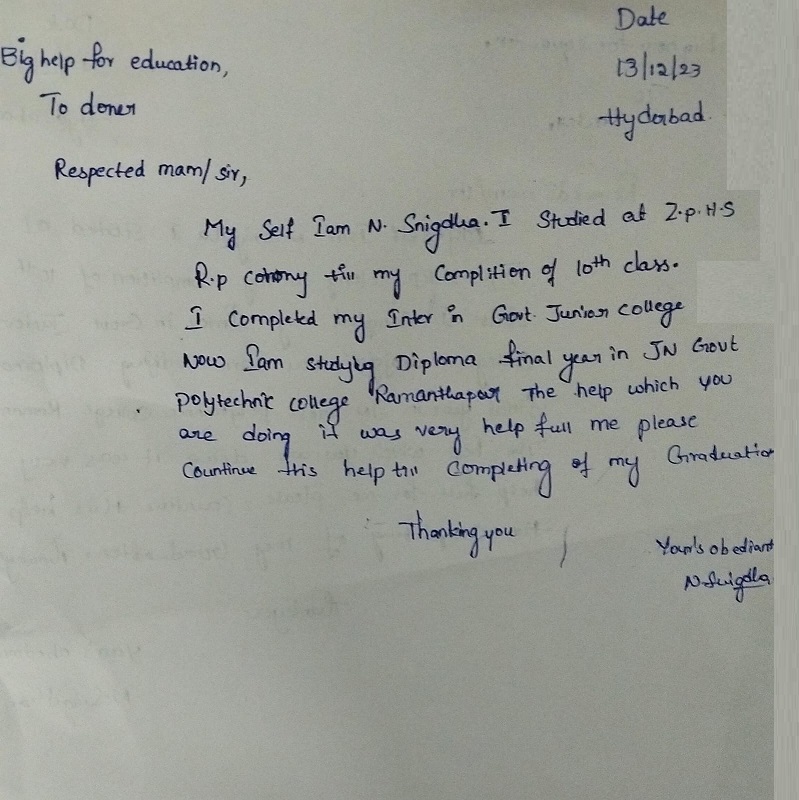 Date
Big help for education,
13/12/23
To doner
Hyderbad.
Respected mam/sir,
My Self Iam N. Snigdha. I Studied at Z.p.H.S
R.p colony till my Complition of 10th class.
I Completed my Inter in Govt. Junior college
Now Iam studyig Diploma final year in JN Govt
polytechnic college Ramanthapur The help which you
are doing it was very help full me please
Countinue this help till Completing of my Graduatio
Thanking you
Your's obediant
N Snigdha